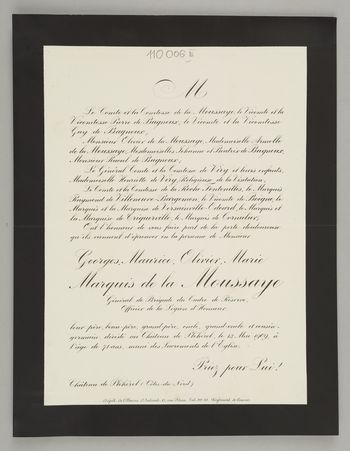 110 006
M
Le Comte et la Comtesse de la Moussaye, le Vicomte et la
Vicomtesse Pierre de Bagneux, le Vicomte et la Vicomtesse
Guy de Bagneux,
Monsieur Olivier de la Moussaye, Mademoiselle Armelle
de la Moussaye, Mesdemoiselles Jehanne et de Bagneux,
Monsieur Raoul de Bagneux,
Le Général Comte et la Comtesse de Viry et leurs enfants,
Mademoiselle Henriette de Viry, Religieuse de la Visitation,
Le Comte et la Comtesse de la Roche Fontenilles, le Marquis
Raymond de Villeneuve Bargemon, le Vicomte de
Marquis et la Marquise de le Marquis et
la Marquise de Criquerville, le Marquis de Cornulier,
Ont l'honneur de vous faire part de la perte douloureuse
qu'ils viennent d'éprouver en la personne de Monsieur
Georges, Maurice, Olivier, Marie
Marquis de la Moussaye
Général de Brigade du Cadre de Réserve,
Officier de la Légion d'Honneur
leur père, beau-père, grand-père, oncle, grand-oncle et cousin
germain, décédé au Château de Bohérel, le 13 Mai 1909, à
l'âge de 71 ans, muni des Sacrements de l'Eglise.
Priez pour Lui!
Château de Bohérel (Côtes-du-Nord)